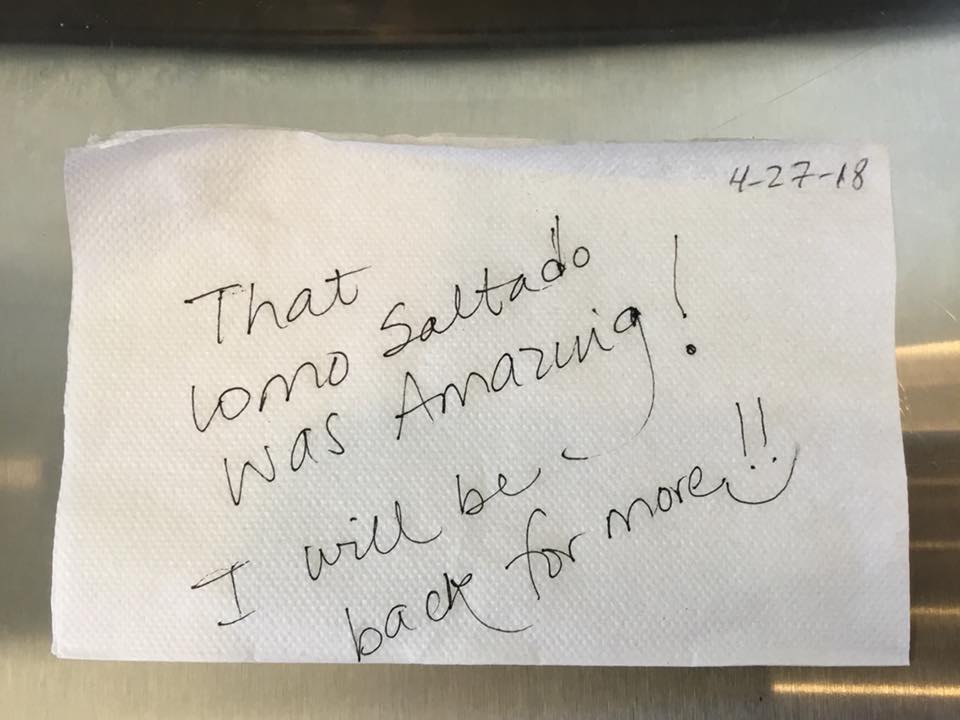 4-27-18
That
lomo Saltado
was Amazing!
I will be
back for more!!